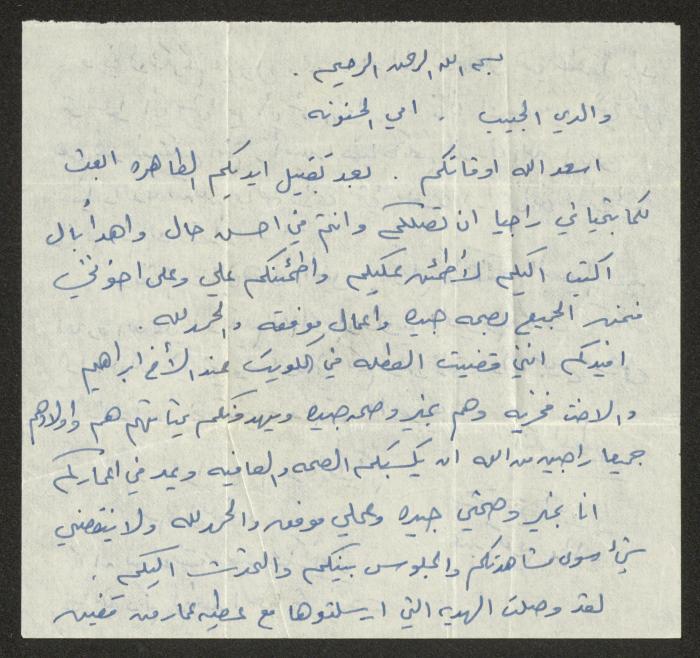 بسم الله الرحمن الرحيم .
والدي الحبيب . امي الحنونه
اسعد الله اوقاتكم . بعد تقبيل ايديكم الطاهره ابعث
لكما بتحياتي راجيا ان تصلكم وانتم في احسن حال واهدأ بال
اكتب اليكم لأطمئن عليكم واطمئنكم علي وعلى اخوتي
فنحن الجميع بصحه جيده واعمال موفقه والحمد لله .
افيدكم انني قضيت العطله في الكويت عند الأخ ابراهيم
والاخت فخريه وهم بخير وصحه جيده ويهدونكم تحياتهم هم واولادهم
جميعا راجين من الله ان يكسبكم الصحه والعافيه ويمد في اعماركم
انا بخير وصحتي جيده وعملي موفق والحمد لله ولا ينقصني
شيء سوى مشاهدتكم والجلوس بينكم والتحدث اليكم .
لقد وصلت الهديه التي ارسلتوها مع عطيه عمار من